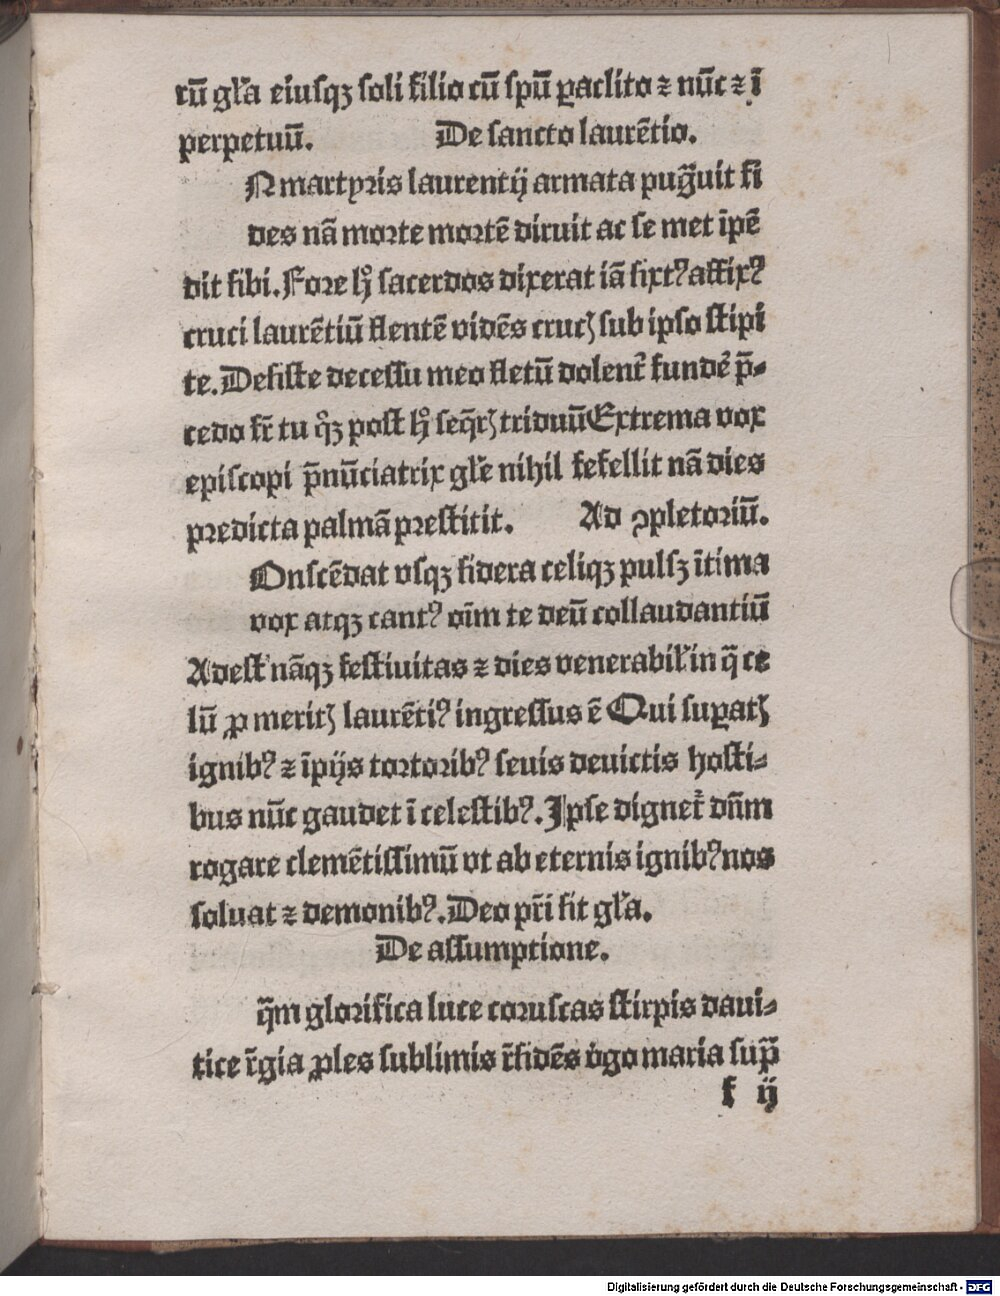 tū gl̄a eiusqꝫ soli filio cū spū ꝑaclito ⁊ nūc ⁊ ī
perpetuū. De sancto laurētio.
N martyris laurentij armata pug̃uit fi
des nā morte mortē diruit ac se met īpē
dit sibi. Fore h̊ sacerdos dixerat iā sixtꝰ affixꝰ
cruci laurētiū flentē vidēs crucꝭ sub ipso stipi
te. Desiste decessu meo fletū dolent᷑ funde᷑ p̄-
cedo fr̄ tu qͦꝫ post h̊ seq̄rꝭ triduū Extrema vox
episcopi p̄nūciatrix gl̄e nihil fefellit nā dies
predicta palmā prestitit. Ad ꝯpletoriū.
Onscēdat vsqꝫ sidera celiqꝫ pulsꝫ ītima
vox atqꝫ cantꝰ oīm te deū collaudantiū
Adest nāqꝫ festiuitas ⁊ dies venerabil̓ in q̄ ce
lū ꝓ meritꝭ laurētiꝰ ingressus ē Qui suꝑatꝭ
ignibꝰ ⁊ īpijs tortoribꝰ seuis deuictis hosti-
bus nūc gaudet ī celestibꝰ. Ipse dignet᷑ dn̄m
rogare clemētissimū vt ab eternis ignibꝰ nos
soluat ⁊ demonibꝰ. Deo pr̄i sit gl̄a.
De assumptione.
q̄m glorifica luce coruscas stirpis daui-
tice r̄gia ꝓles sublimis r̄sidēs v̓go maria sup̄
f ij
Digitalisierung gefördert durch die Deutsche Forschungsgemeinschaft - DFG